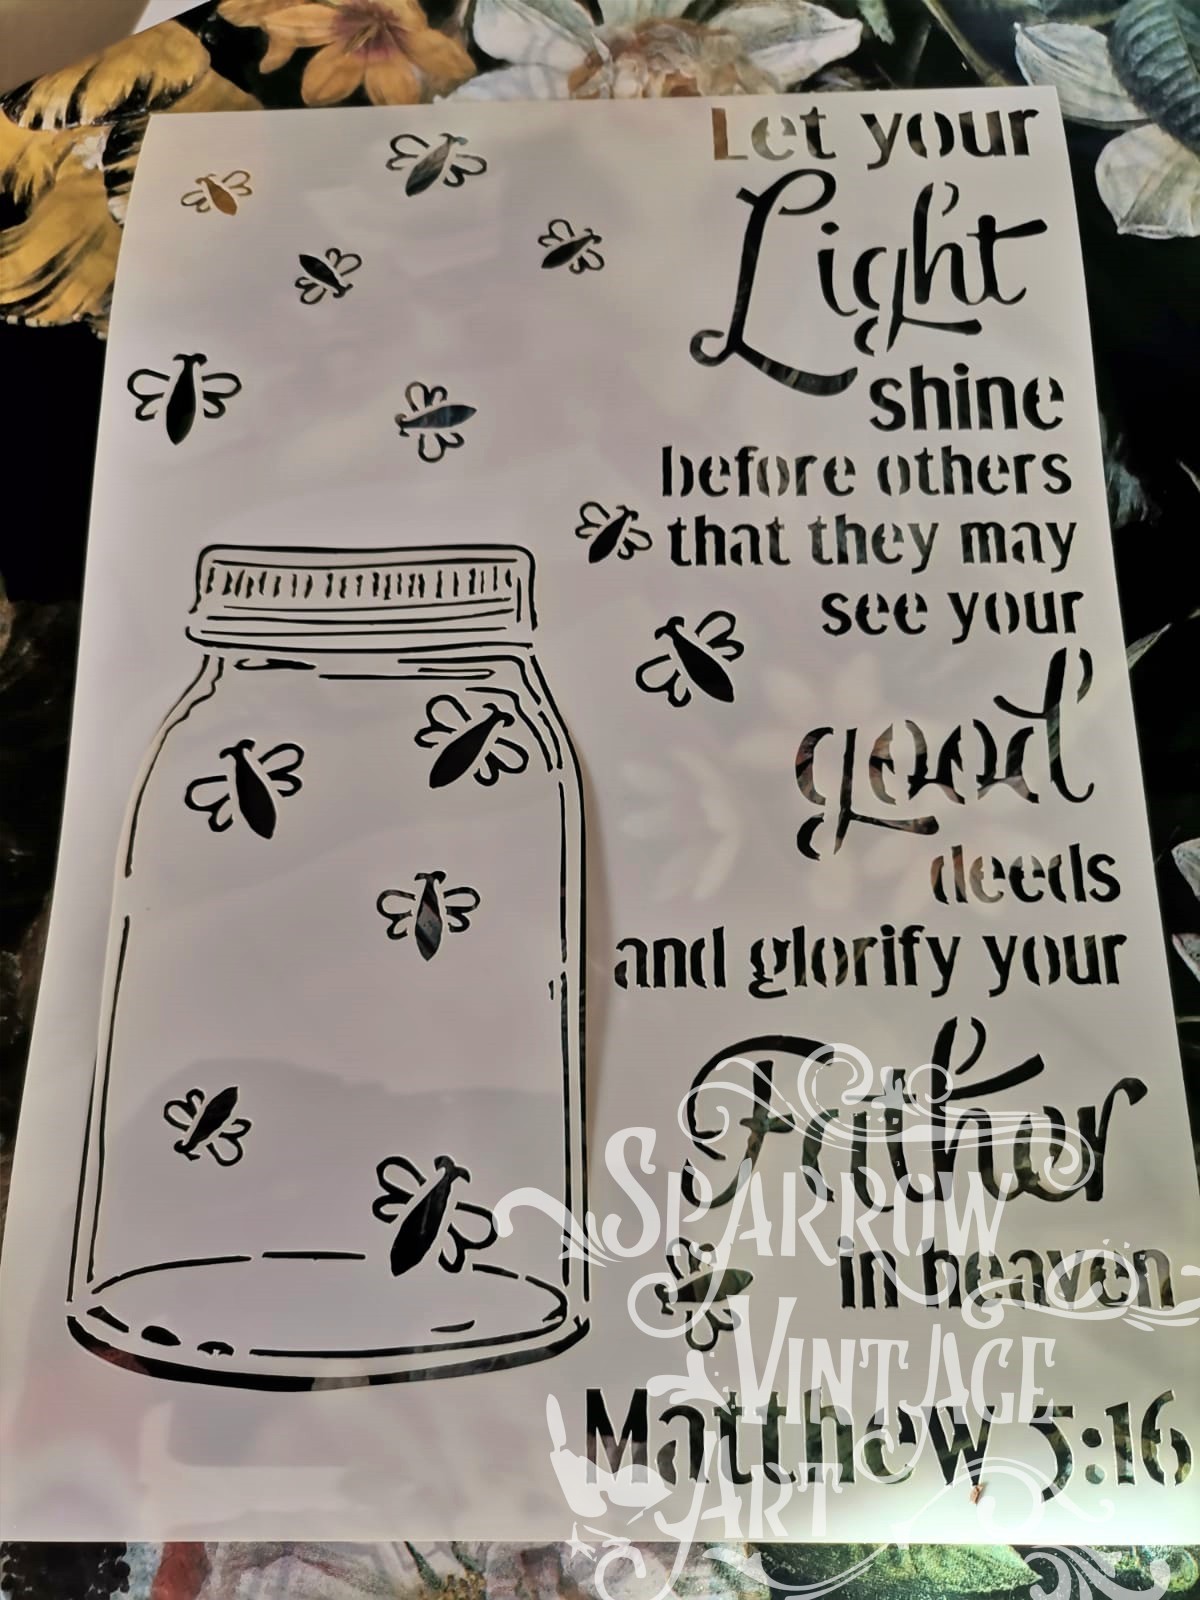 Let your
Light
shine
before others
that they may
see your
good
deeds
and glorify your
Father
in heaven
Matthew 5:16
Sparrow
Vintage
Art